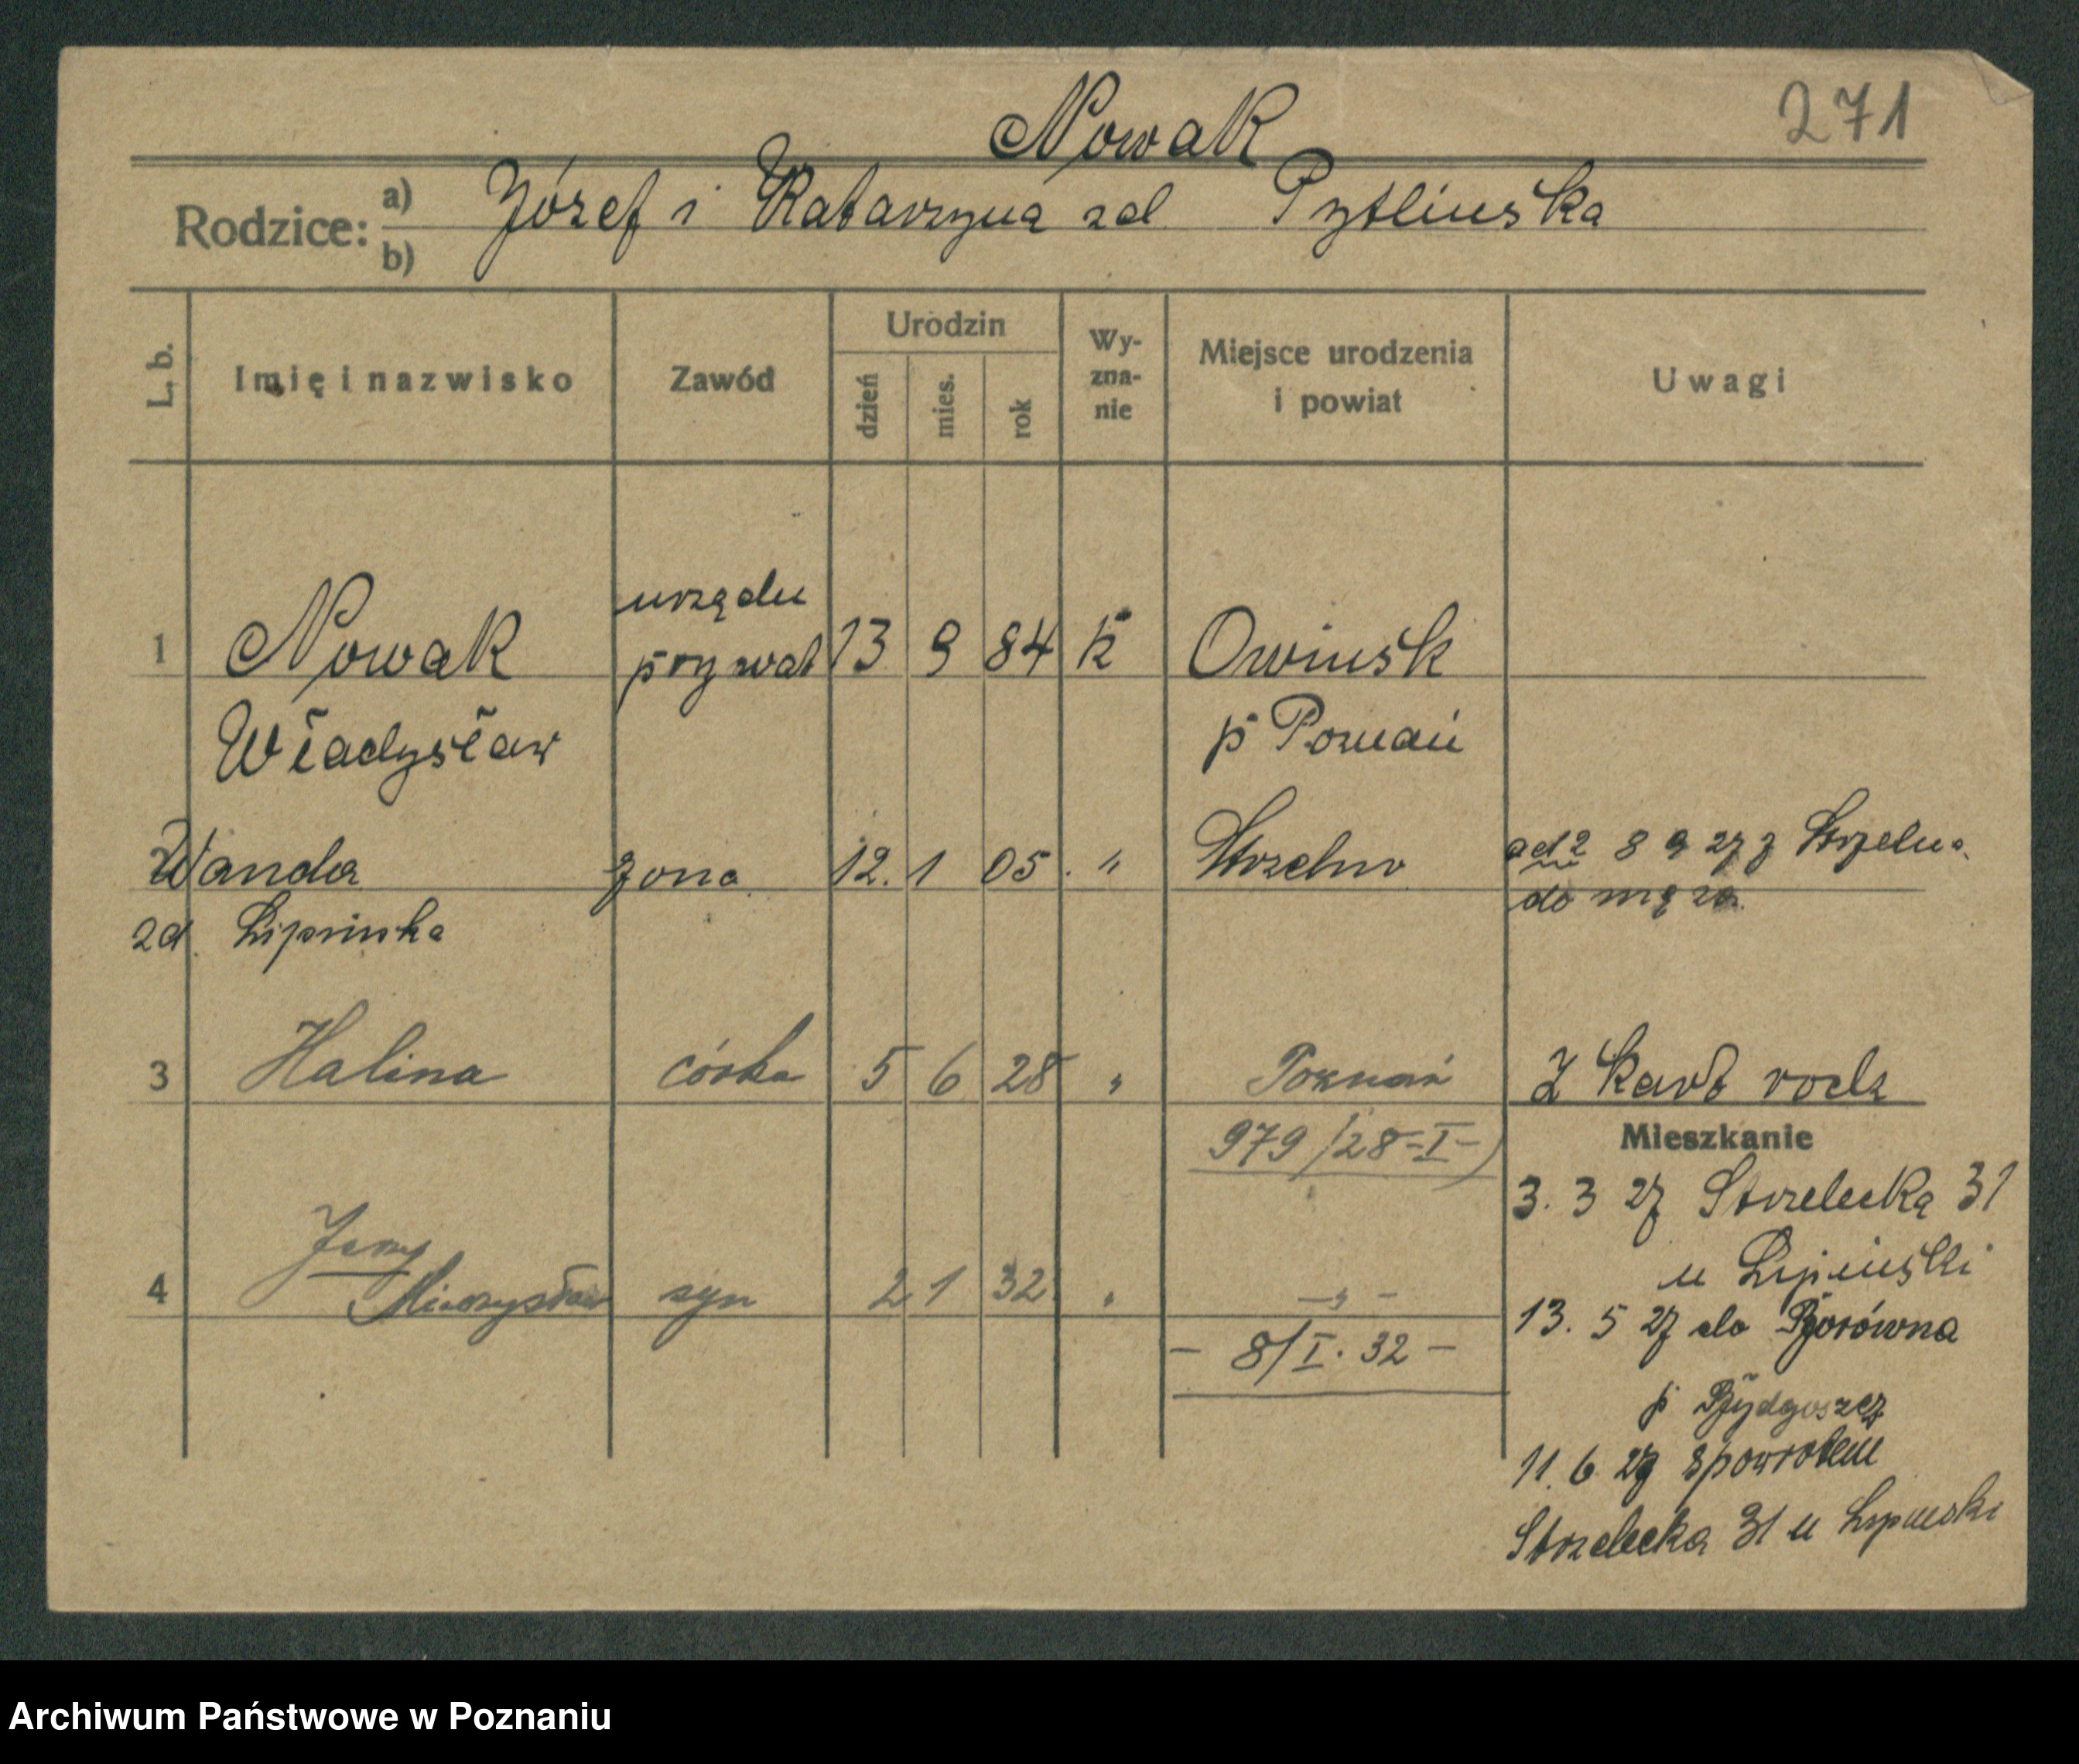 Nowak
271
Rodzice: a) Józef i Katarzyna zd Pytlińska
b)
L. b.
Imię i nazwisko
Zawód
Urodzin
dzień
mies.
rok
Wy-
zna-
nie
Miejsce urodzenia
i powiat
Uwagi
urzędn
1 Nowak prywat 13 9 84 k Owińsk
Władysław p Poznań
Wanda żona 12. 1 05. " Strzelno ad 2 8 9 27 z Strzelna
do męża.
zd. Lipińska
3 Halina córka 5 6 28 " Poznań Z kart rodz
979/28-I-)
Mieszkanie
3. 3 27 Strzelecka 31
u Lipiński
Jerzy
4 Mieczysław syn 2 1 32 " – " –
13. 5 27 do
– 8/I. 32 –
p Bydgoszcz
11. 6 27 spowrotem
Strzelecka 31 u Lipiński
Archiwum Państwowe w Poznaniu